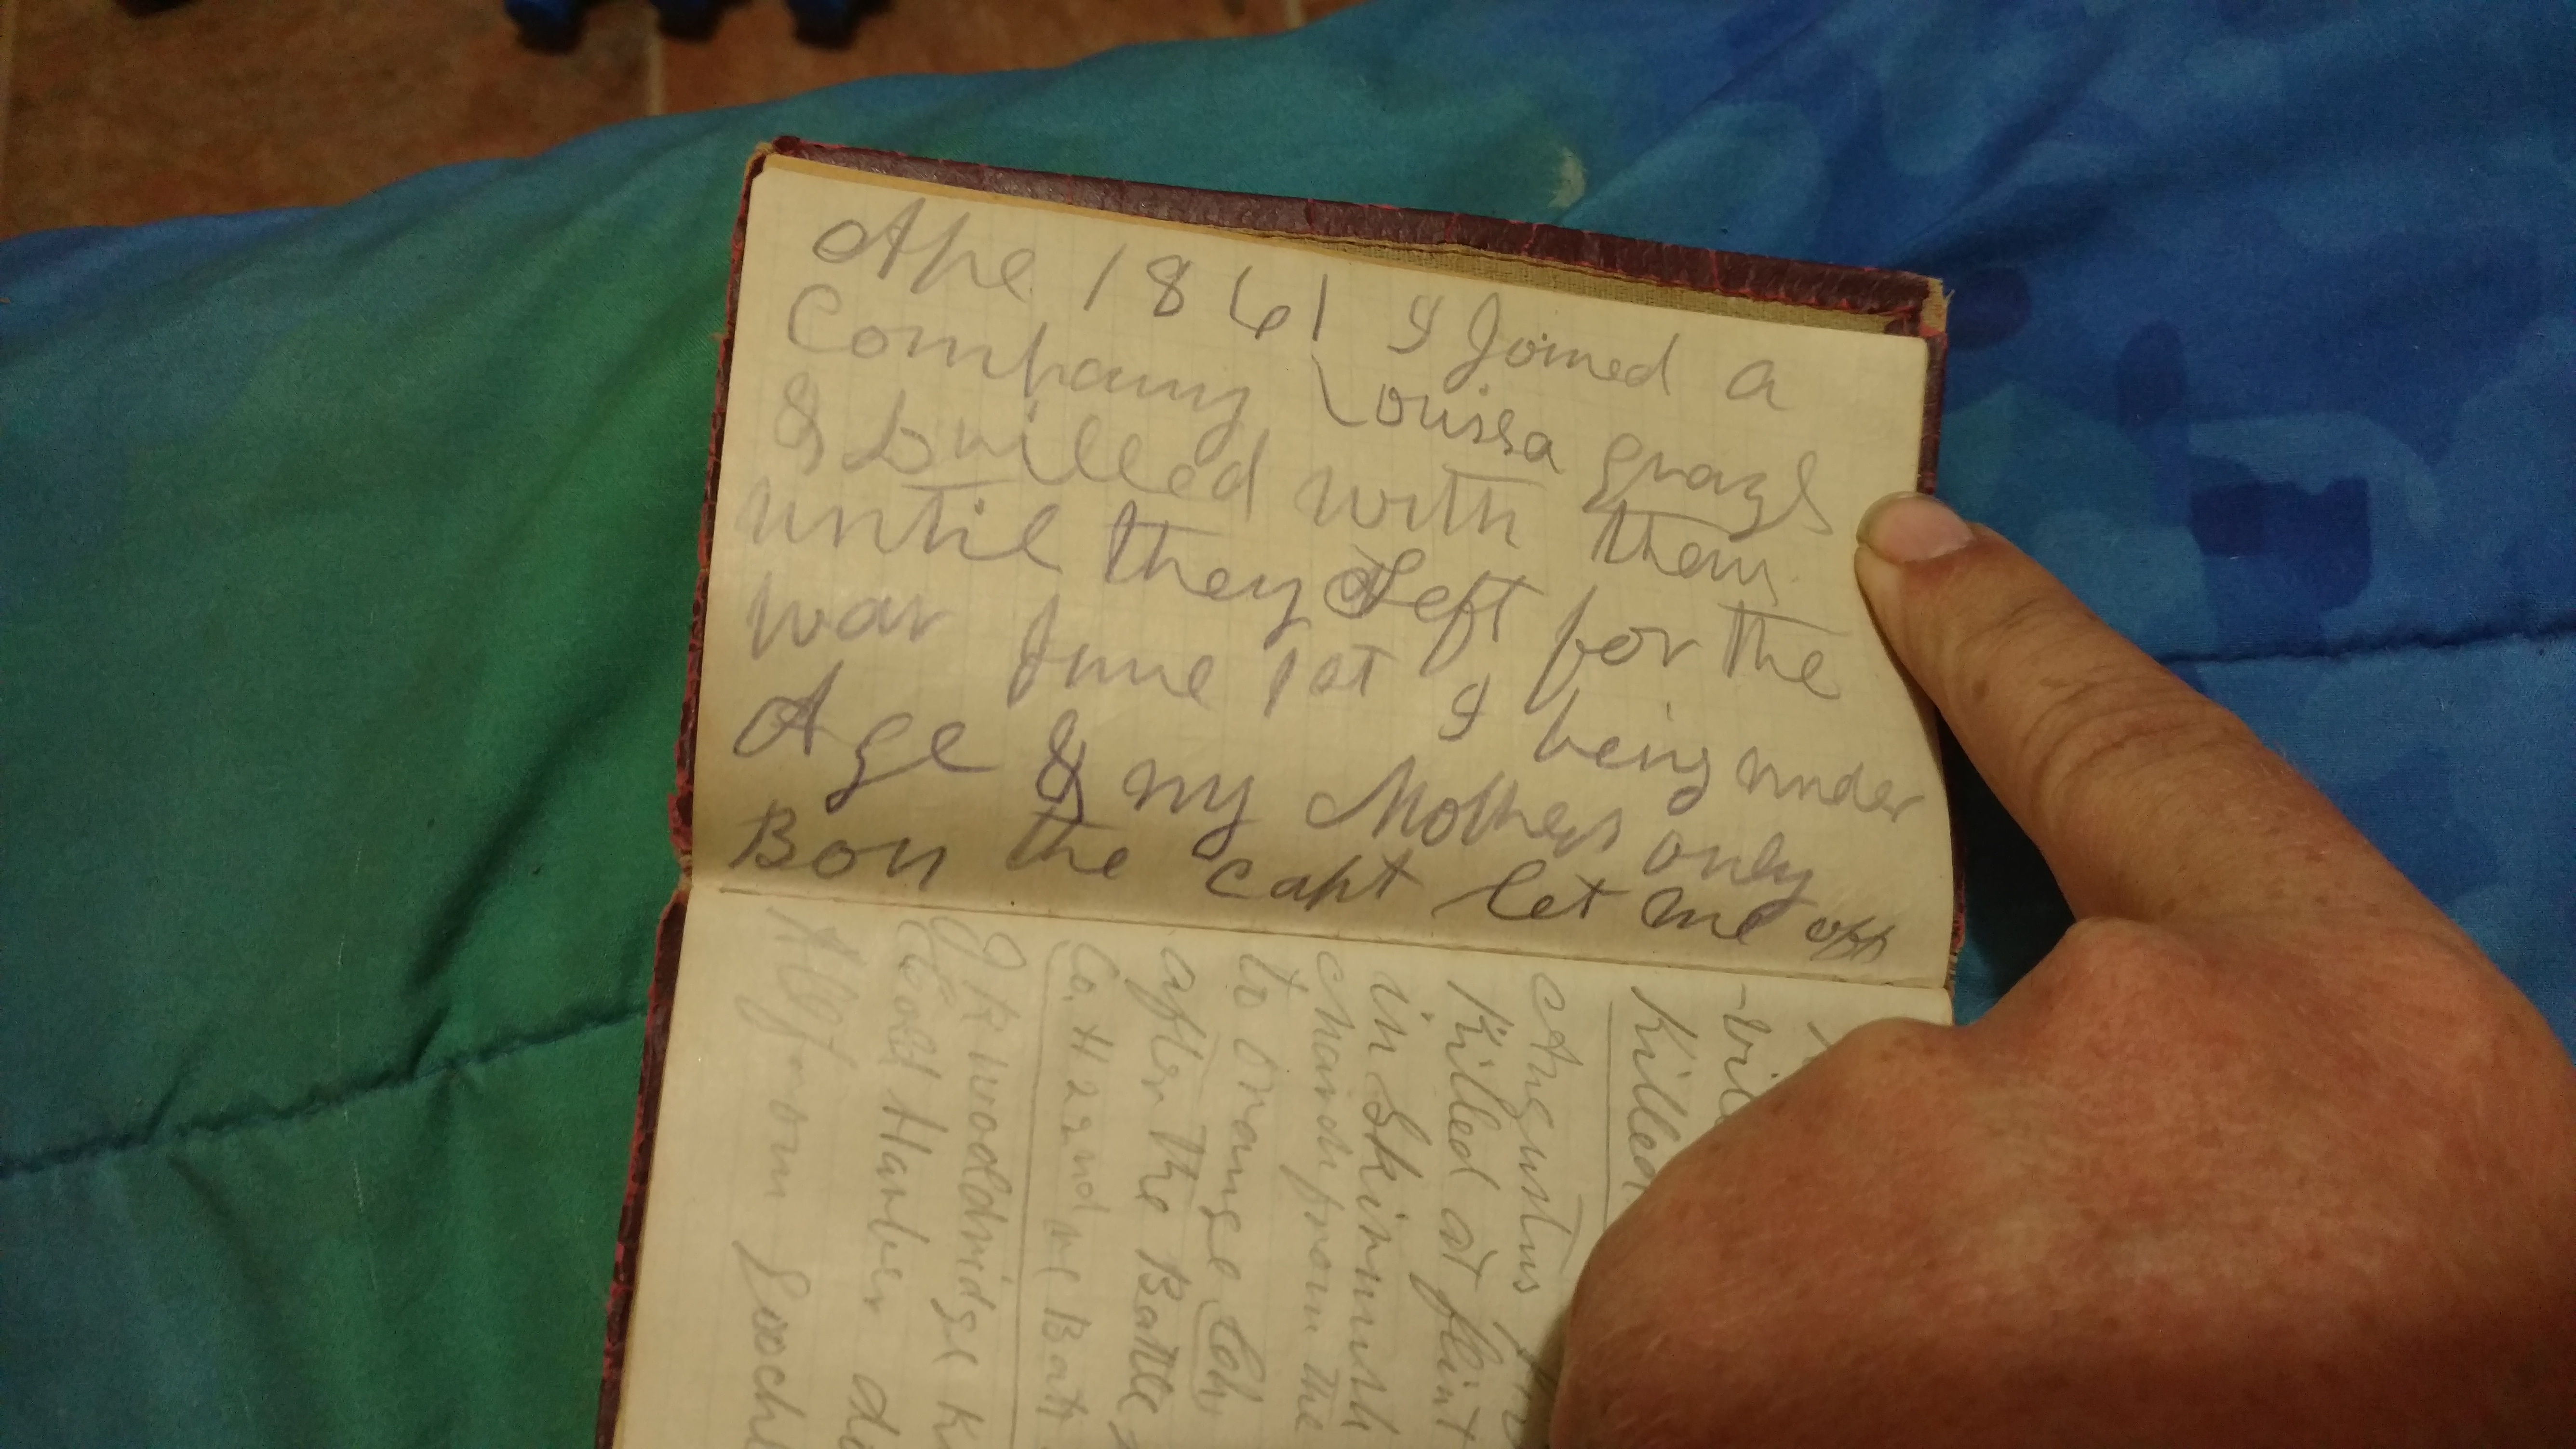 Ape 1861 I Joined a
Company Louisa grays
& Drilled with them
until they Left for the
war June 1st I being under
Age & my Mothers only
Boy the capt let me off
-vil
Killed
Augustus
Killed at flint
in Skirmish
charch from the
to orange Coh
after the Battle
Co. H 22nd Batt
J R Wooldridge K
Cold Harber di
All from Gooch